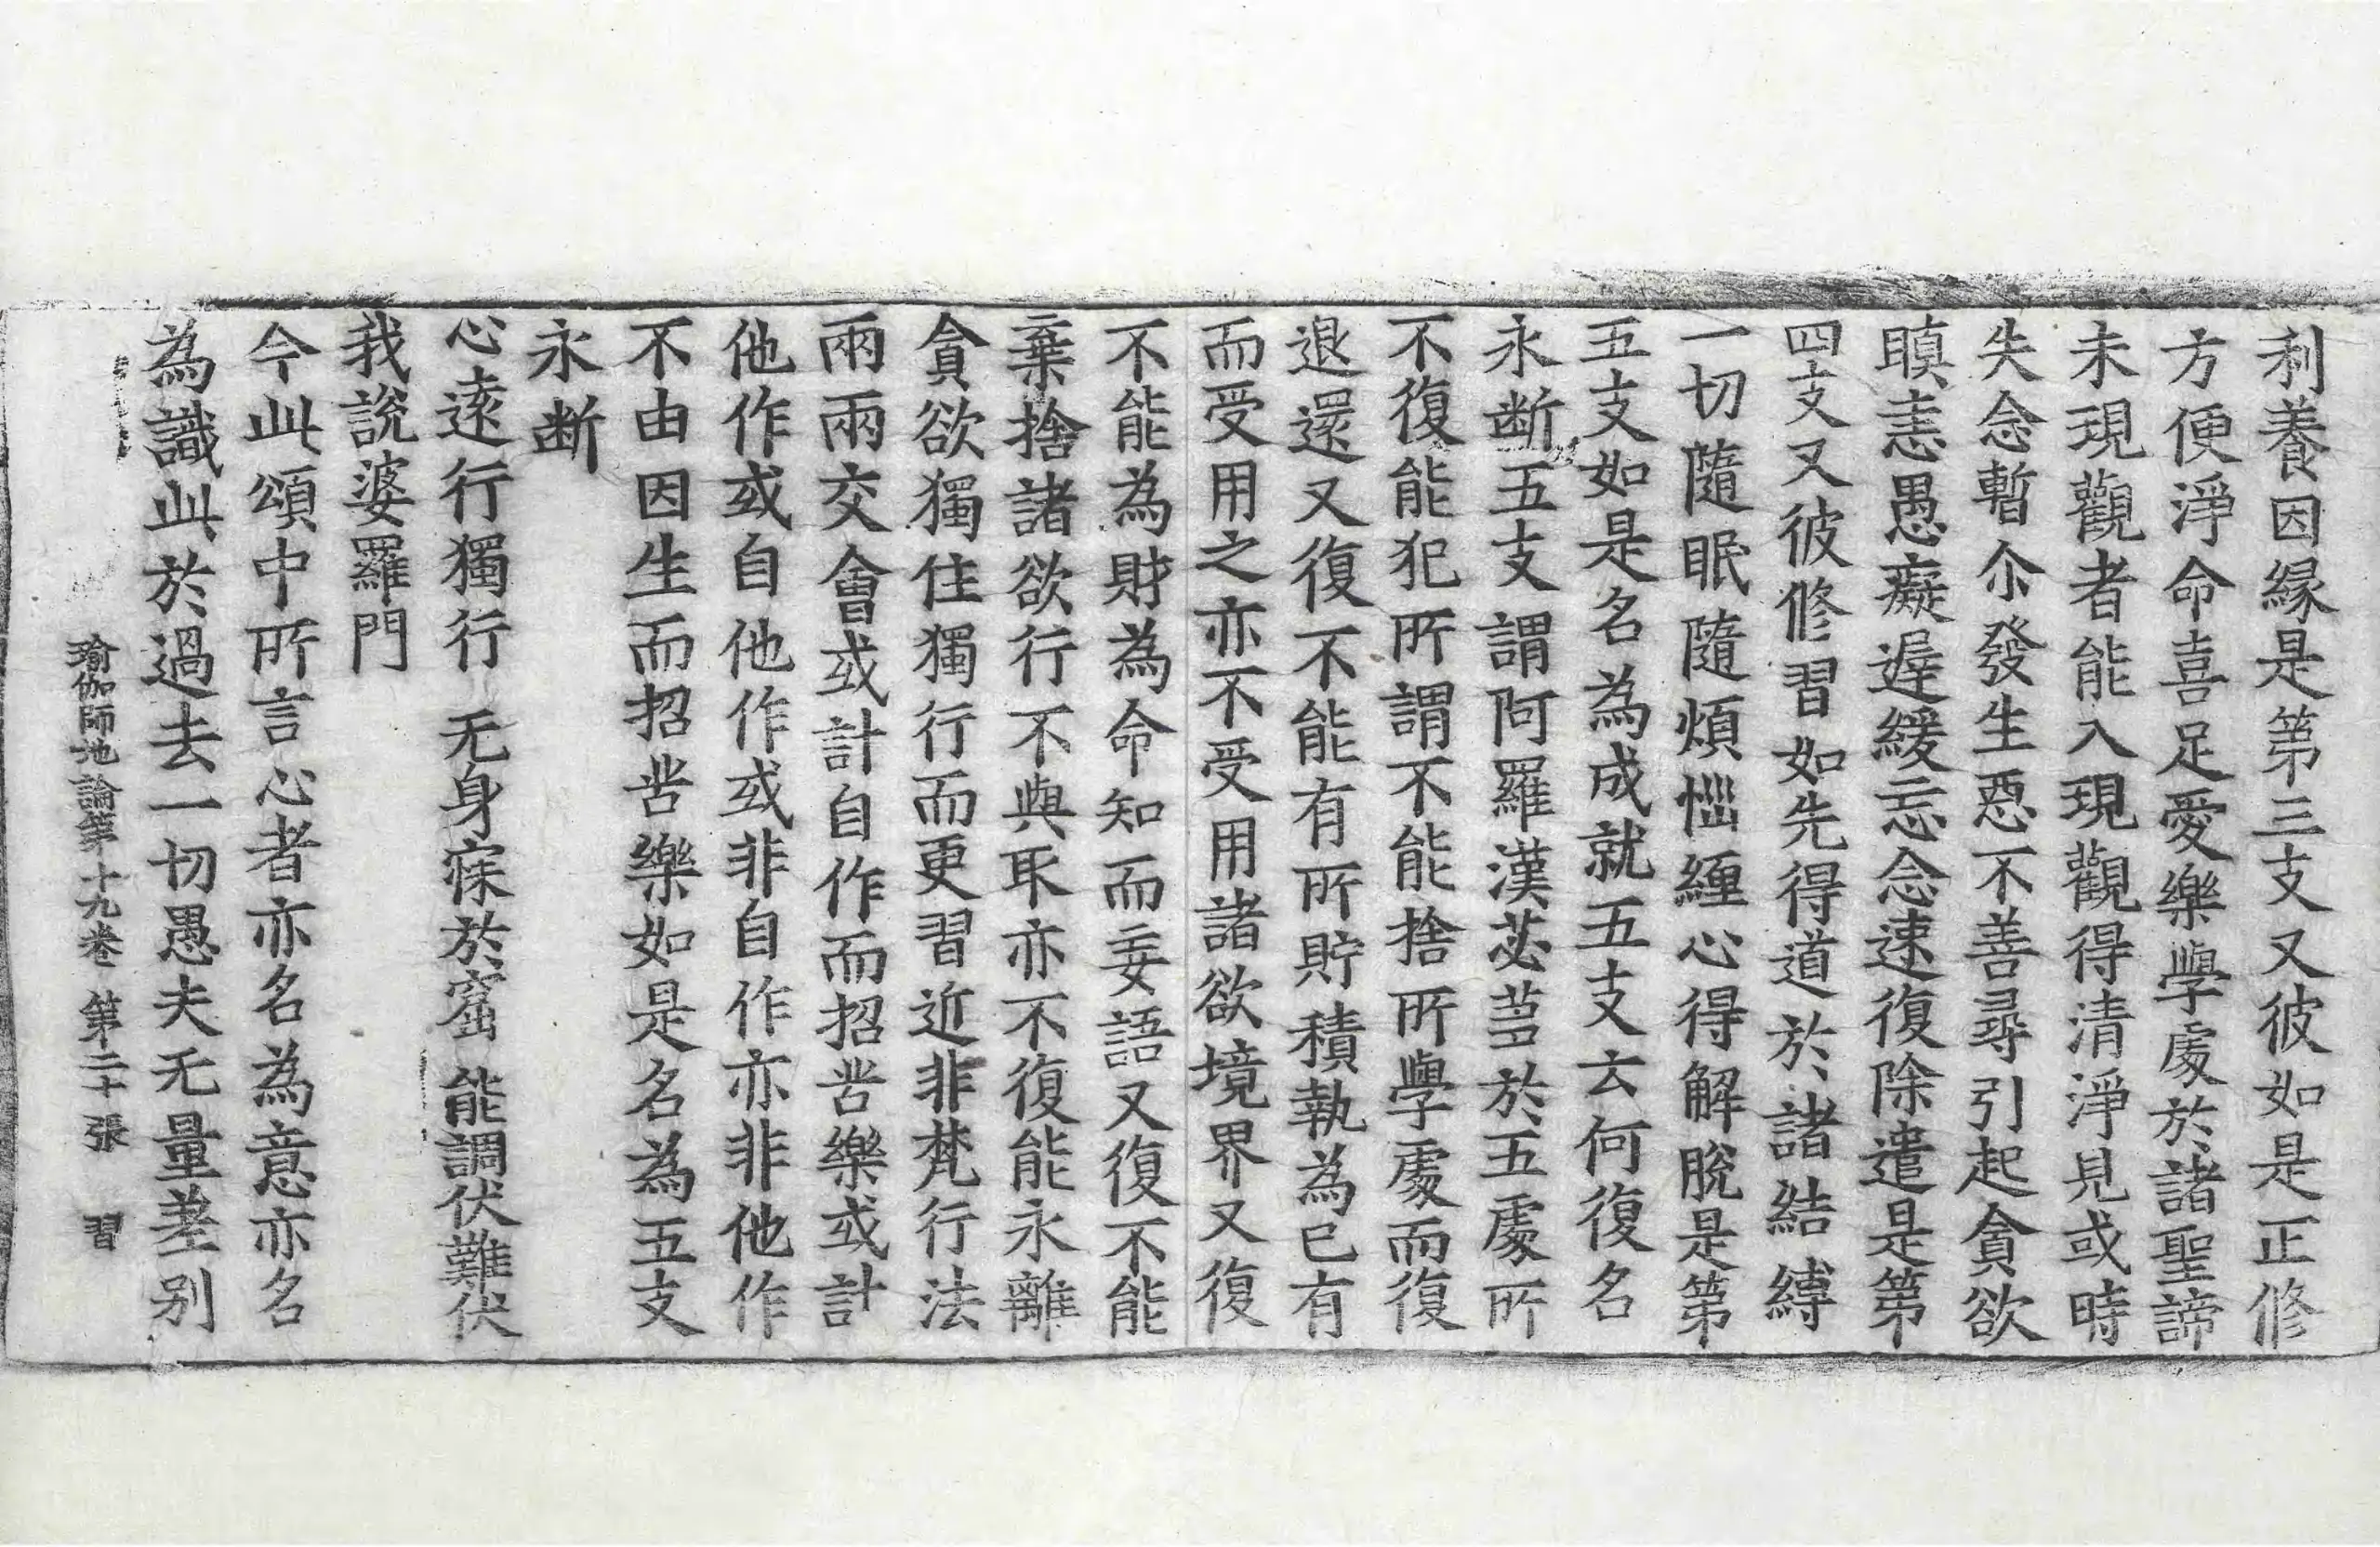 利養因緣是第三支又彼如是正修
方便淨命喜足愛樂學處於諸聖諦
未現觀者能入現觀得清淨見或時
失念暫尒發生惡不善尋引起貪欲
瞋恚愚癡遲緩忘念速復除遣是第
四支又彼修習如先得道於諸結縛
一切隨眠隨煩惱纏心得解脫是第
五支如是名為成就五支云何復名
永断五支謂阿羅漢苾芻於五處所
不復能犯所謂不能捨所學處而復
退還又復不能有所貯積執為已有
而受用之亦不受用諸欲境界又復
不能為財為命知而妄語又復不能
棄捨諸欲行不與取亦不復能永離
貪欲獨住獨行而更習近非梵行法
兩兩交會或計自作而招苦樂或計
他作或自他作或非自作亦非他作
不由因生而招苦樂如是名為五支
永断
心遠行獨行 无身寐於窟 能調伏難伏
我說婆羅門
今此頌中所言心者亦名為意亦名
為識此於過去一切愚夫无量差别
瑜伽師地論第十九卷 第二十張 習